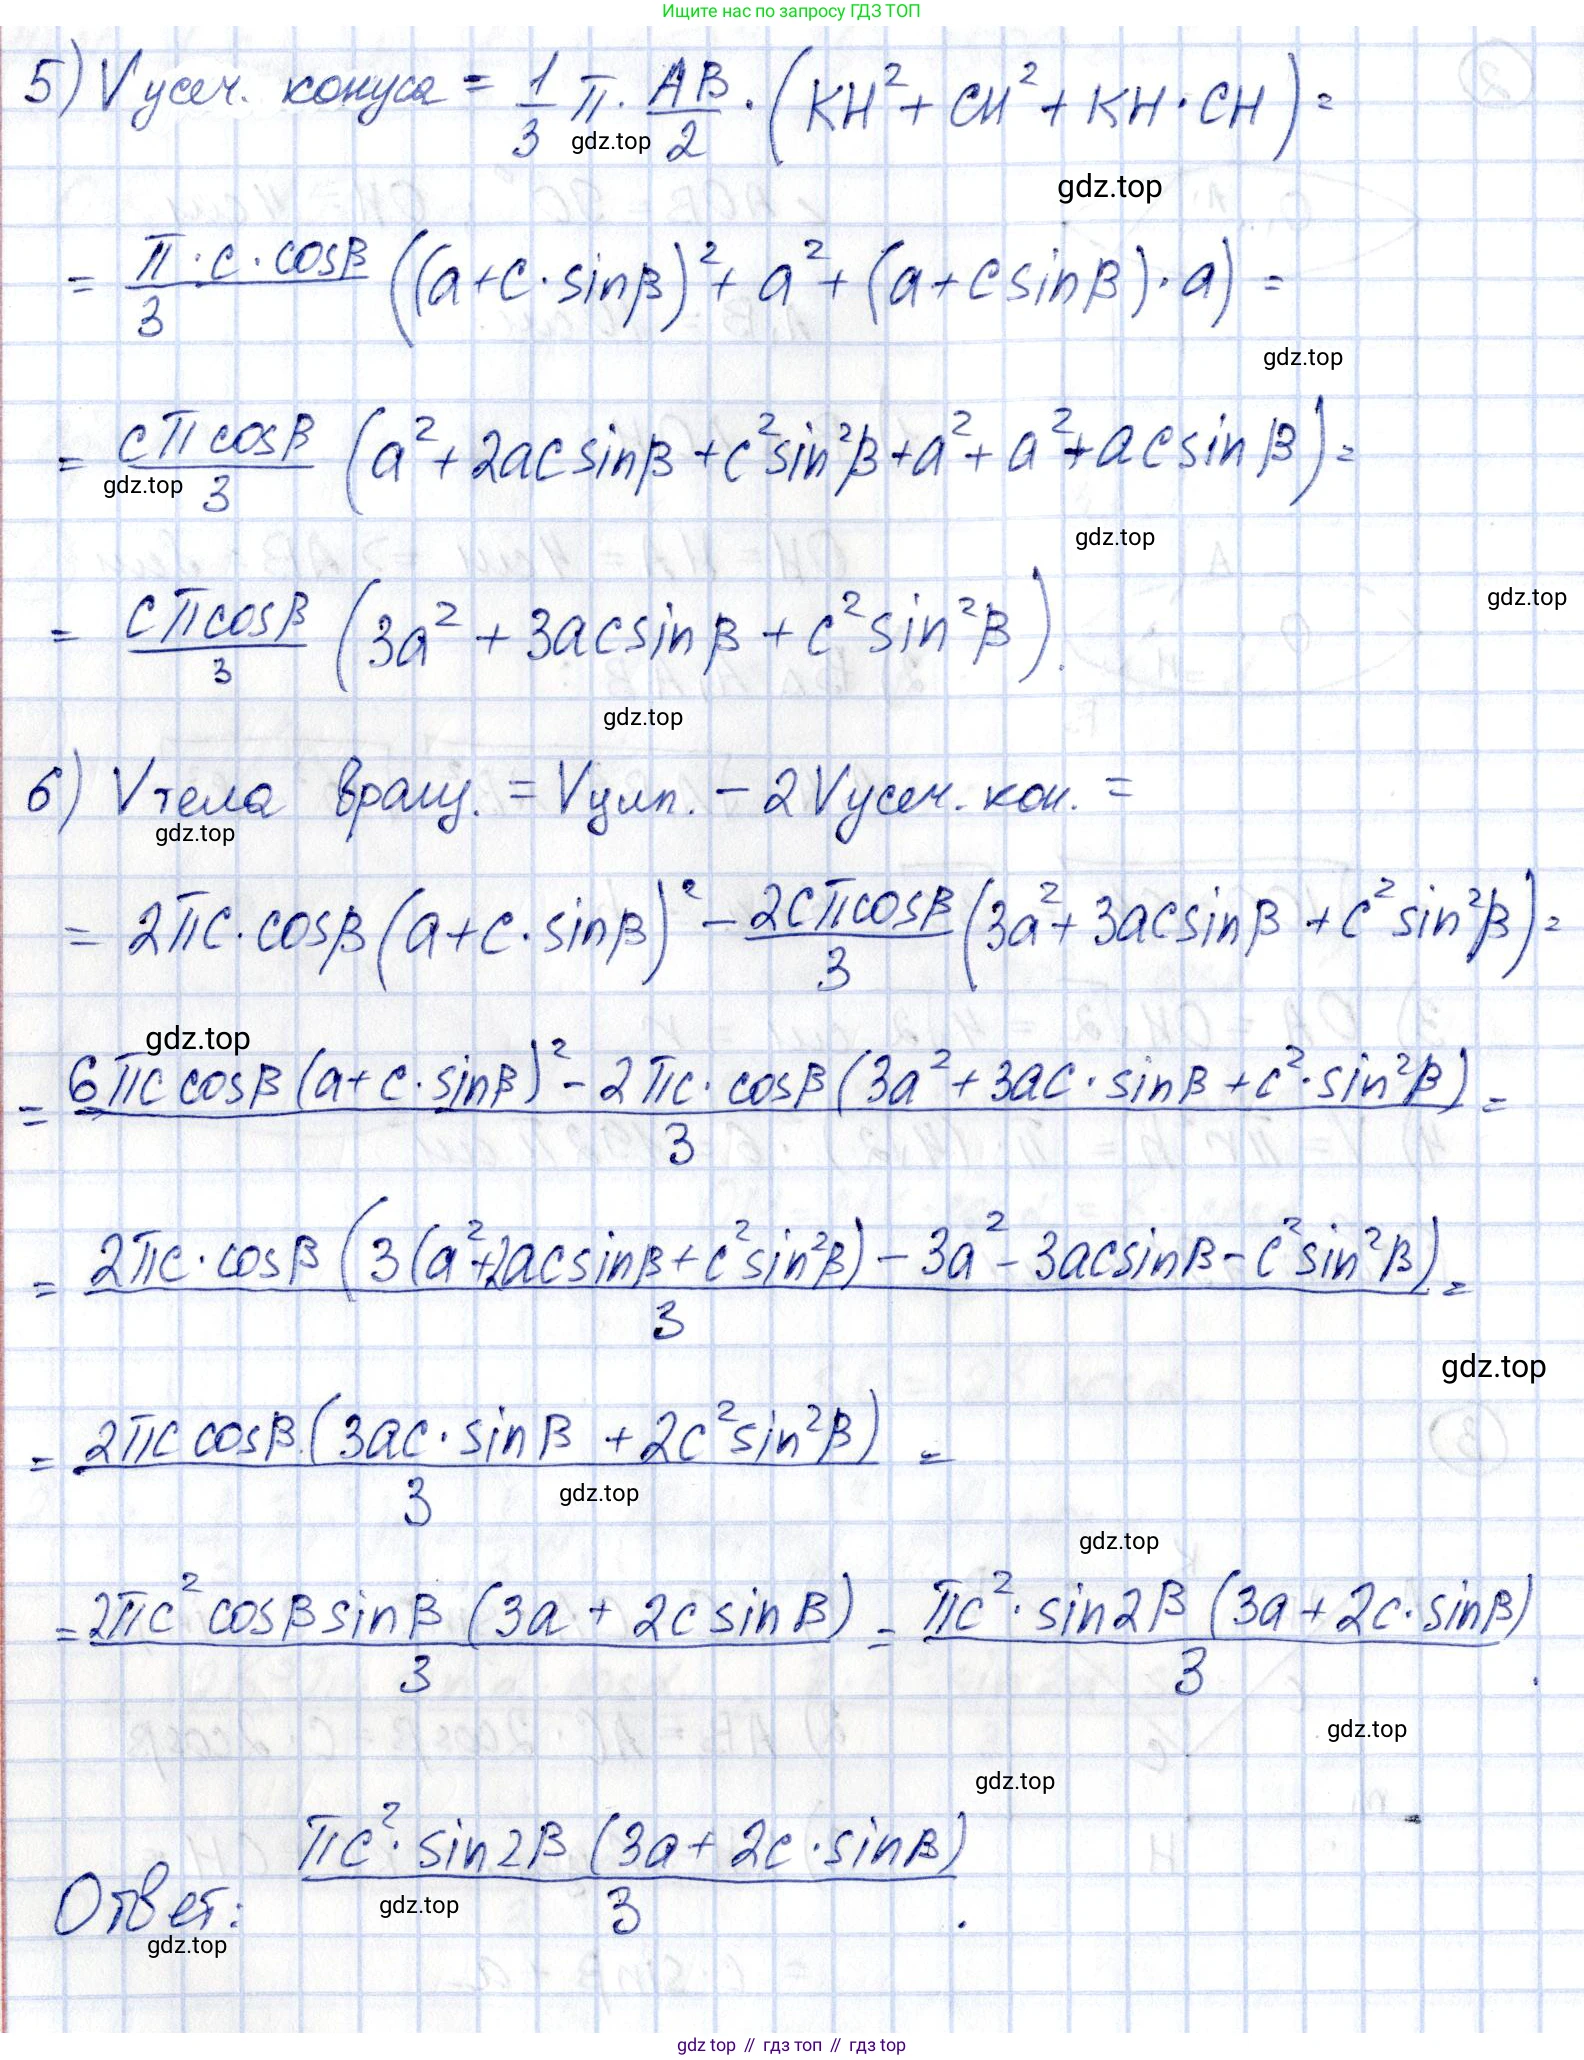 Ищите нас по запросу ГДЗ ТОП
5) Vусеч. конуса = 1/3 π · AB/2 · (KH² + CH² + KH · CH) =
gdz.top
gdz.top
= π · c · cosβ / 3 ((a + c · sinβ)² + a² + (a + c sinβ) · a) =
gdz.top
= cπ cosβ / 3 (a² + 2ac sinβ + c² sin²β + a² + a² + ac sinβ) =
gdz.top
gdz.top
gdz.top
= cπ cosβ / 3 (3a² + 3ac sinβ + c² sin²β).
gdz.top
6) Vтела вращ. = Vцил. - 2Vусеч. кон. =
gdz.top
= 2πc · cosβ (a + c · sinβ)² - 2cπcosβ / 3 (3a² + 3ac sinβ + c² sin²β) =
gdz.top
= 6πc cosβ (a + c · sinβ)² - 2πc · cosβ (3a² + 3ac · sinβ + c² · sin²β) / 3 =
= 2πc · cosβ (3(a² + 2ac sinβ + c² sin²β) - 3a² - 3ac sinβ - c² sin²β) / 3 =
gdz.top
= 2πc cosβ (3ac · sinβ + 2c² sin²β) / 3 =
gdz.top
gdz.top
= 2πc² cosβ sinβ (3a + 2c sinβ) / 3 = πc² · sin2β (3a + 2c · sinβ) / 3.
gdz.top
gdz.top
Ответ: πc² · sin2β (3a + 2c · sinβ) / 3.
gdz.top
gdz.top
gdz top // гдз топ // gdz top